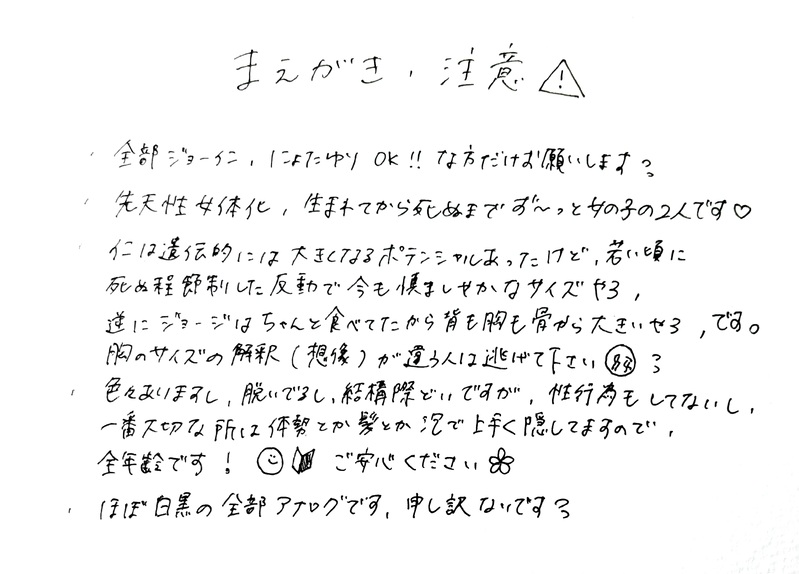 まえがき、注意⚠
・全部ジョーイン、にょたゆりOK!!な方だけお願いしますっ
・先天性女体化、生まれてから死ぬまでず〜っと女の子の2人です♡
・仁は遺伝的には大きくなるポテンシャルあったけど、若い頃に
死ぬ程節制した反動で今も慎ましやかなサイズやろ、
逆にジョージはちゃんと食べてたから背も胸も骨から大きいやろ、です。
胸のサイズの解釈(想像)が違う人は逃げて下さいっ
・色々ありますし、脱いでるし、結構際どいですが、性行為もしてないし、
一番大切な所は体勢とか髪とか泡で上手く隠してますので、
全年齢です!ご安心ください
・ほぼ白黒の全部アナログです、申し訳ないですっ